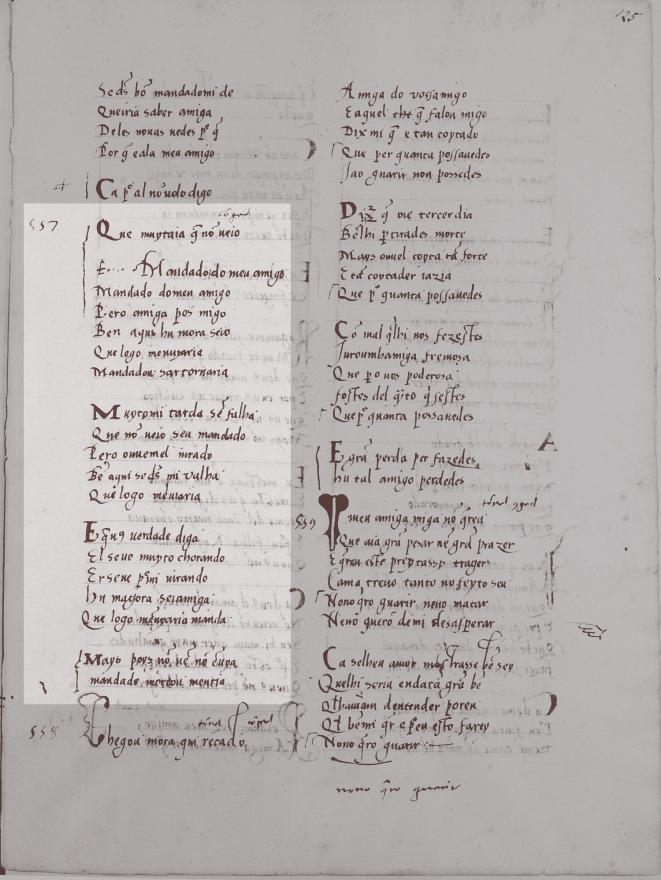 135
Se ds bõ mandadomi de
Queiria saber amiga
Deles nouas uedes p̃ q̃
Por q̃ eala meu amigo
Ca p̃ al nõ uolo digo
557
Que muytaia q̃ nõ ueio
Mandado do meu amigo
Mandado domeu amigo
Pero amiga pos migo
Ben aqui hu mora seio
Que logo
Mandadou sar tornaria
Muytomi tarda sẽ falha
Que nõ ueio seu mandado
Pero ouuemel iurado
Bẽ aqui se ds mi valha
Que logo menuiaria
E q̃ uerdade diga
El seue muyto chorando
Er seue p̃ mi iurando
Hu magora seiamiga
Que logo menuiaria manda
Mays poys nõ uẽ nẽ
mandade mortou mentia
558
Chegou mora qui recado
Amiga do vossamigo
E aquel che q̃ falou migo
Dix mi q̃ e tan coytado
Que per quanta possauedes
Jao guarir non possedes
Diz q̃ oie tercer dia
Bẽ lhi partirades morte
Mays ouuel coyta tã forte
E tã coytader iazia
Que p̃ quanta possauedes
Cõ mal q̃lhi uos fezestes
Jurouinhamiga fremosa
Que p̃ o uos poderosa
fostes del q̃ito q̃sestes
Que p̃ quanta possauedes
E grã perda per fazedes
hu tal amigo perdedes
559
meu amiga miga nõ q̃rea
Que aia grã pesar nẽ grã prazer
E q̃reu este preytassy trager
Cama treuo tanto no feyto seu
Nono q̃ro guarir neno matar
Nenõ quero de mi desasperar
Ca selheu amor mostrasse bẽ sey
Quelhi seria endatã grã bẽ
Qlhauiam dentender poren
Ql bẽ mi q̃r e p̃ eu esto farey
Nono q̃ro guarir
nono q̃ro guarir